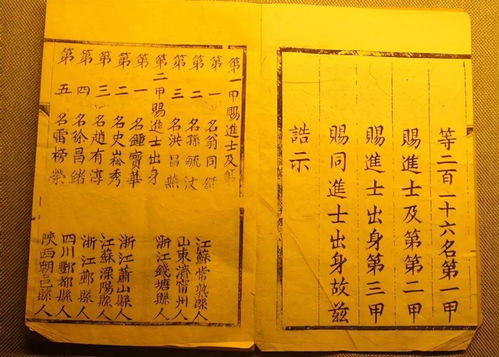 等二百一十六名第一甲
賜進士及第第二甲
賜進士出身第三甲
賜同進士出身故茲
誥示
第一甲賜進士及第
第一名翁同龢 江蘇常熟縣人
第二名孫毓汶 山東濟寧州人
第三名洪昌燕 浙江錢塘縣人
第二甲賜進士出身
第一名鍾寶華 浙江蕭山縣人
第二名史崧秀 江蘇溧陽縣人
第三名趙有淳 浙江鄞縣人
第四名徐昌緒 四川酆都縣人
第五名雷榜榮 陝西朝邑縣人